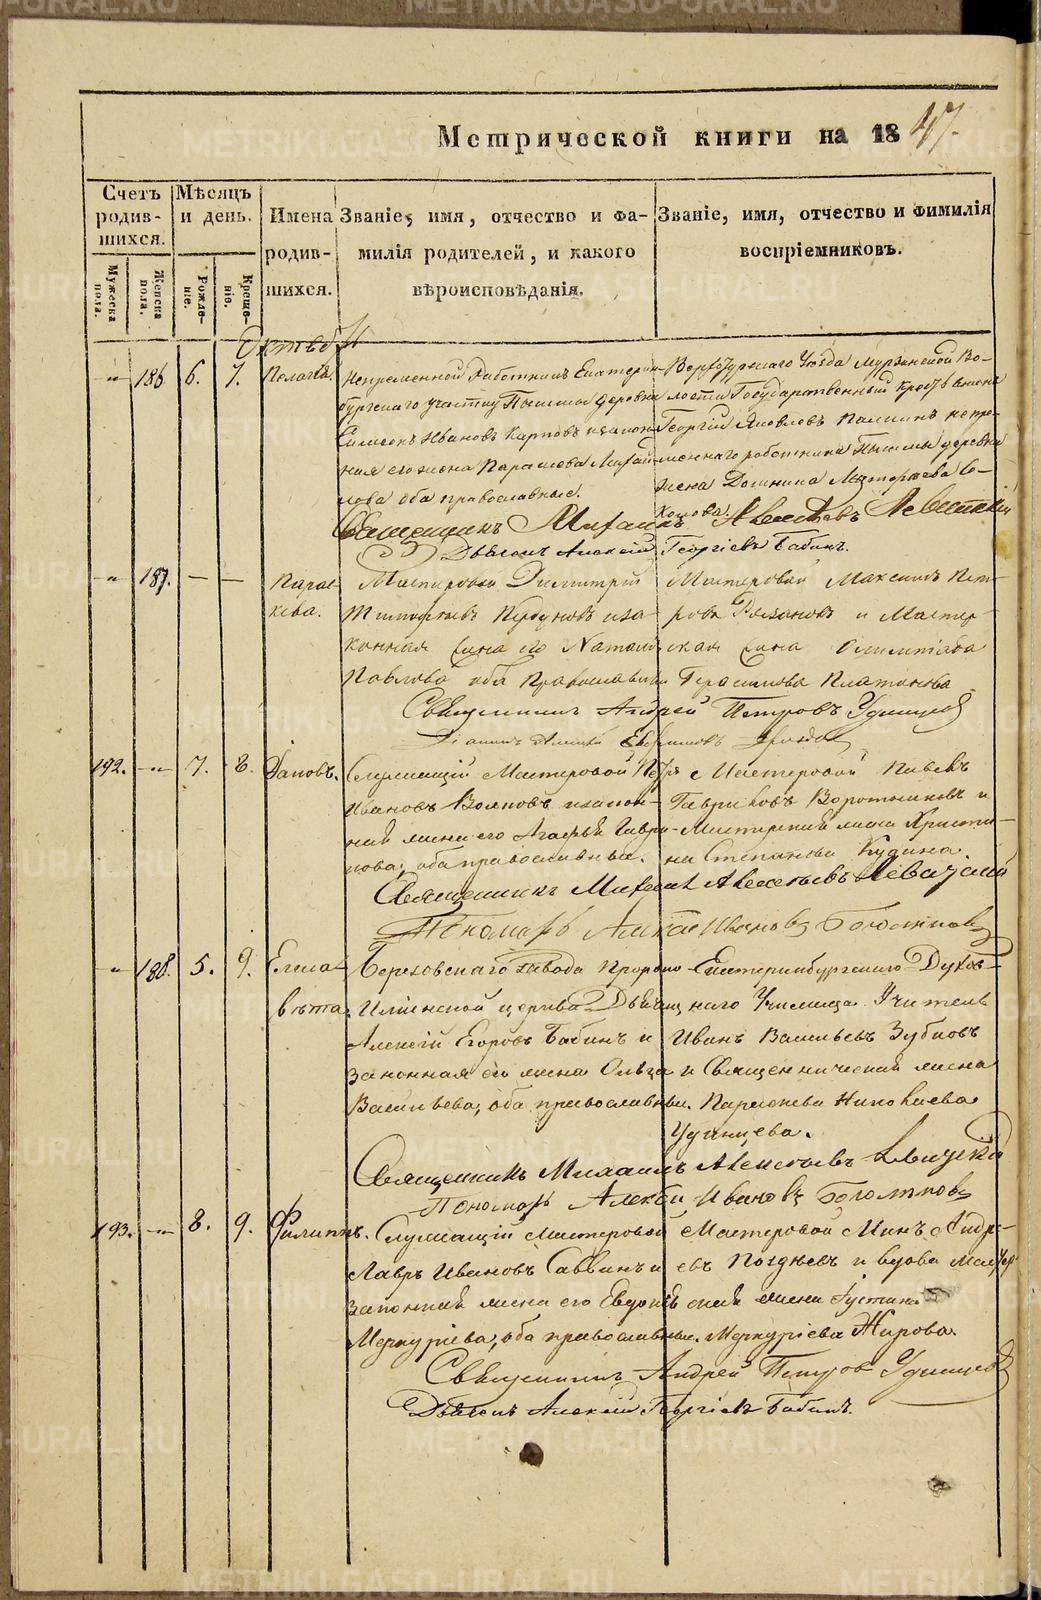 METRIKI.GASO-URAL.RU
Метрической книги на 1847.
Счетъ родив-шихся.
Мѣсяцъ и день.
Имена родив-шихся.
Званіе, имя, отчество и фа-
милія родителей, и какого
вѣроисповѣданія.
Званіе, имя, отчество и фимилія
воспріемниковъ.
Мужеска пола.
Женска пола.
Рожде-ніе.
Креще-ніе.
Октября
186 6. 7. Пелагія.
Непременной работникъ Екатерин-
бургскаго участку Пышмы деревни
Симеонъ Ивановъ Карповъ и закон-
ная его жена Парасковья Михай-
лова оба православные.
Верхотурскаго Уѣзда Мурзинской Во-
лости Государственный крест
Георгій Яковлевъ и непре-
меннаго работника Пышмы деревни
жена Домника
Священникъ Михаилъ Алексѣевъ Левитскій
Дьяконъ Алексій Георгіевъ Бабинъ.
187. — — Параскева.
Мастеровой Димитрій
Тимофеевъ и за-
конная жена его Наталія
Павлова оба православные
Мастеровой Максимъ Пет-
ровъ Рязановъ и Мастер-
ская жена Олимпіада
Герасимова Платонова
Священникъ Андрей Петровъ Удинцевъ
192. 7. 8. Іаковъ.
Служащій Мастеровой Петръ
Ивановъ и закон-
ная жена его Агафья Гаври-
лова, оба православные.
Мастеровой Павелъ
Гавриловъ Воротниковъ и
Мастерская жена Христи-
на Степанова Кудина.
Священникъ Михаилъ Алексѣевъ Левитскій
Пономарь Алексѣй Ивановъ Боголѣповъ
188. 5. 9. Елиса-
вѣта.
Березовскаго завода Пророко-
Ильинской церкви Дьяконъ
Алексій Егоровъ Бабинъ и
законная его жена Ольга
Васильева, оба православные.
Екатеринбургскаго Духов-
наго Училища Учитель
Иванъ Васильевъ Зубковъ
и Священническая жена
Парасковья Николаева
Удинцева.
Священникъ Михаилъ Алексѣевъ Левицкій
Пономарь Алексѣй Ивановъ Боголѣповъ
193. 8. 9. Филиппъ.
Служащій мастеровой
Лавръ Ивановъ Саввинъ и
законная жена его Евдокія
Меркурьева, оба православные.
Мастеровой Минъ Андре-
евъ Поздѣевъ и вдова мастер-
ская жена Іустина
Меркуріева Жирова.
Священникъ Андрей Петровъ Удинцевъ
Дьяконъ Алексій Георгіевъ Бабинъ.